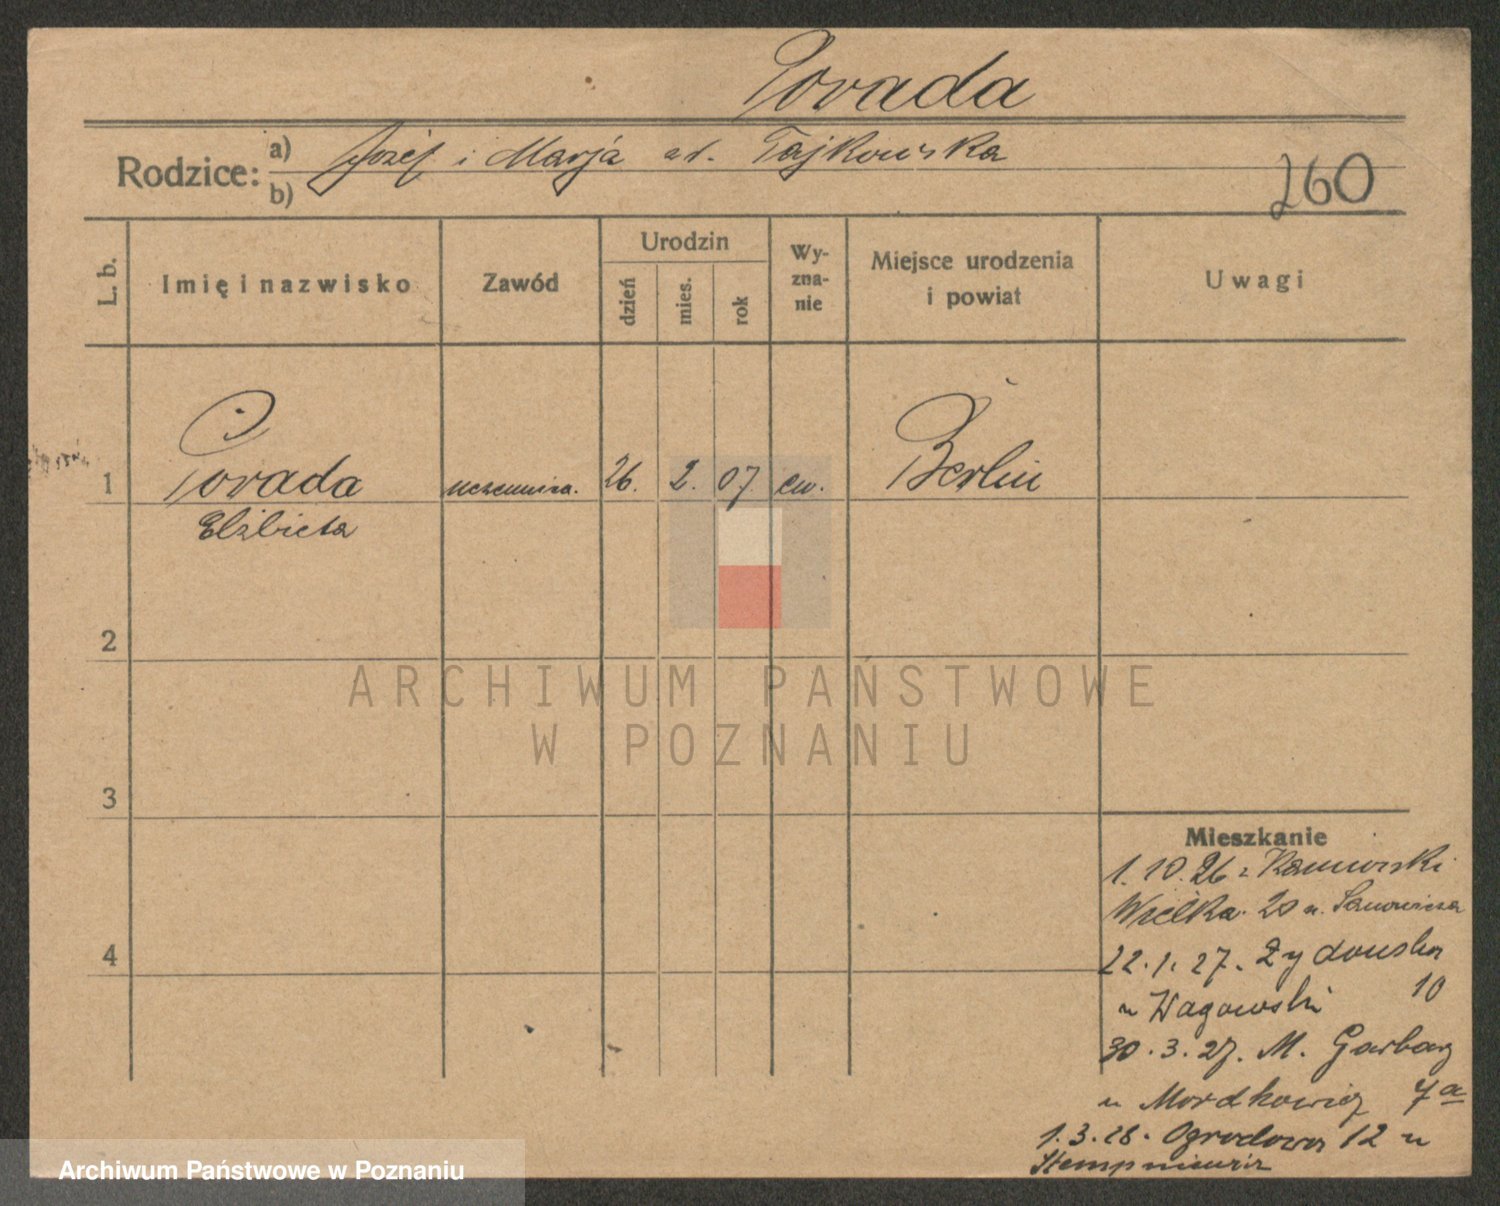 Porada
Rodzice:
a) Józef i Marja
b)
260
L. b.
Imię i nazwisko
Zawód
Urodzin
dzień
mies.
rok
Wy-
zna-
nie
Miejsce urodzenia
i powiat
Uwagi
1
Porada
uczennica.
26.
2.
07.
ew.
Berlin
Elżbieta
2
ARCHIWUM PAŃSTWOWE
W POZNANIU
3
Mieszkanie
1.10.26 z
Wielka 20 u.
4
22.1.27. Żydowska
10
u Wagowski
30.3.27. M. Garbary
u Mordkowicz 7a
1.3.28. Ogrodowa 12 u
Archiwum Państwowe w Poznaniu